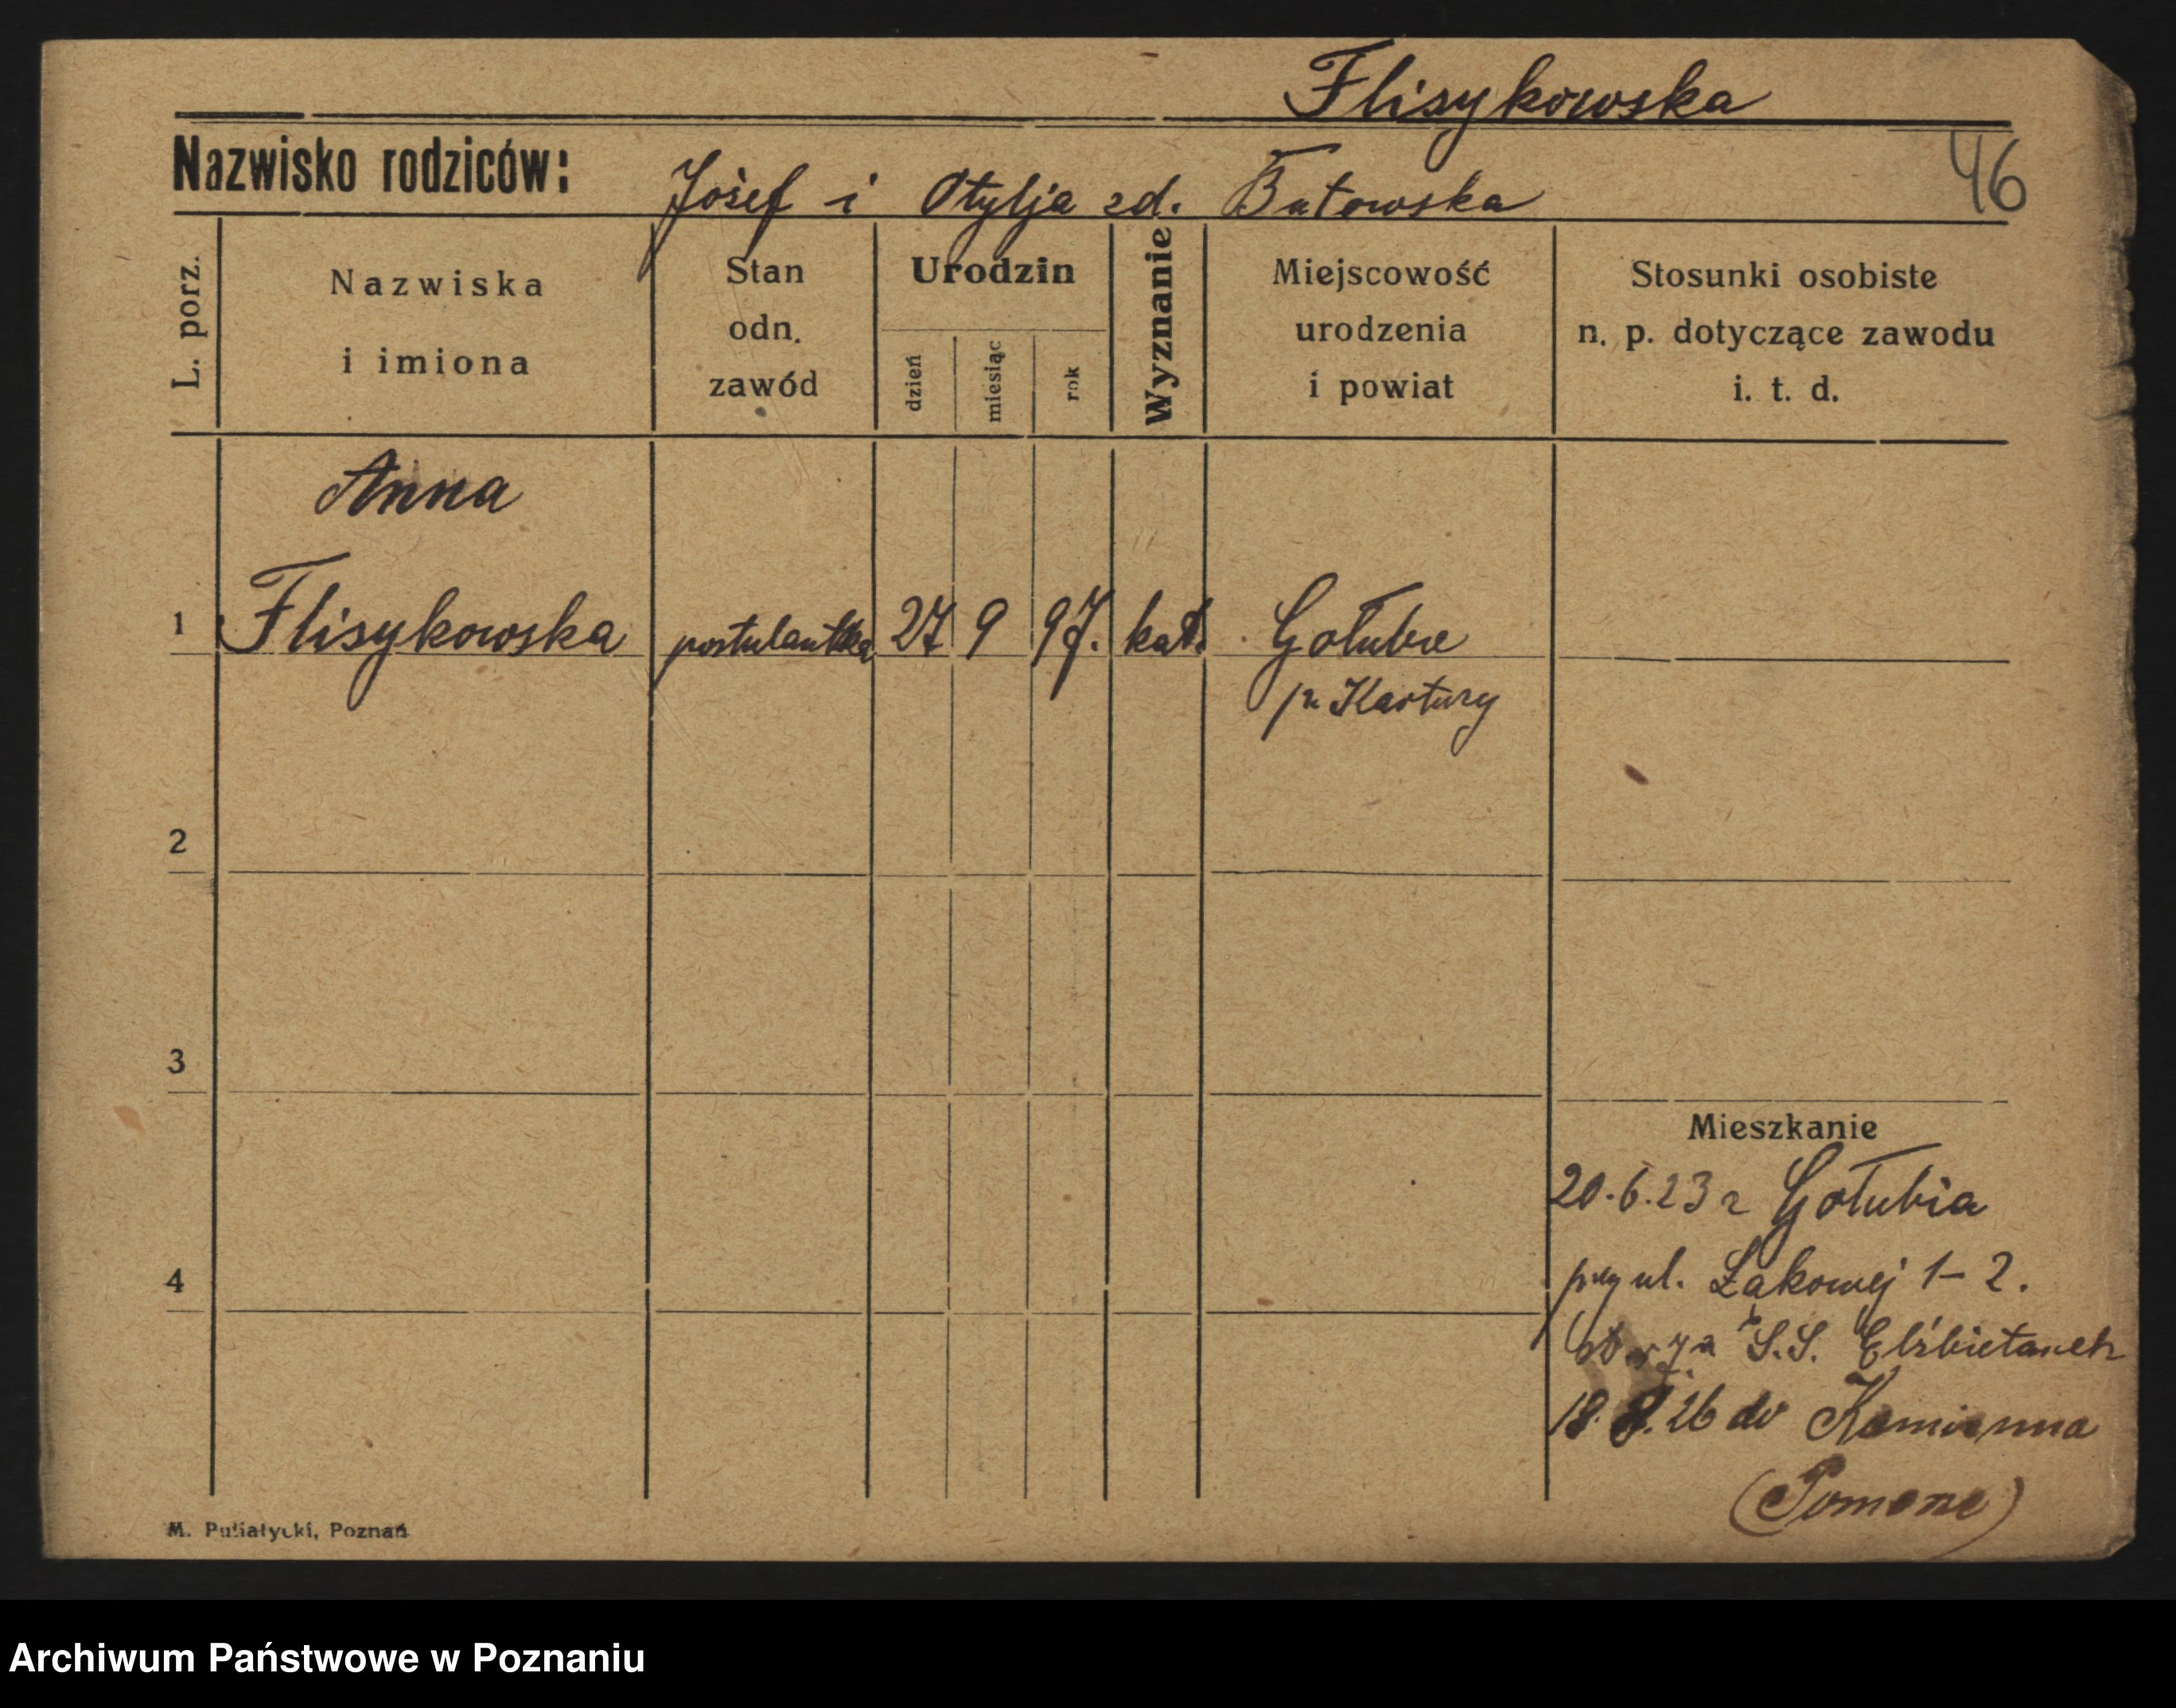 Flisykowska
Nazwisko rodziców: Józef i Otylja zd. Butowska
46
L. porz.
Nazwiska
i imiona
Stan
odn.
zawód
Urodzin
dzień
miesiąc
rok
Wyznanie
Miejscowość
urodzenia
i powiat
Stosunki osobiste
n. p. dotyczące zawodu
i. t. d.
Anna
1 Flisykowska postulantka 27 9 97. kat. Gołubie
p. Kartuzy
2
3
Mieszkanie
20.6.23 z Gołubia
4
przy ul. Łąkowej 1-2.
S.S. Elżbietanek
18. 8. 26 do Kamienna
M. Putiatycki, Poznań
Archiwum Państwowe w Poznaniu